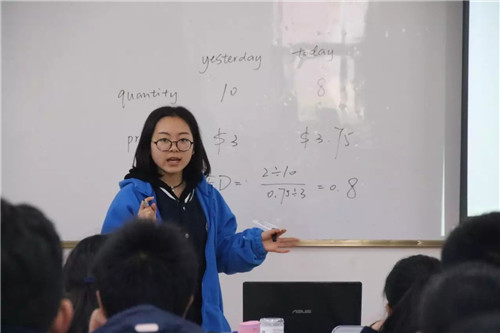 yesterday today
quantity 10 8
pr $3 $3.75
ED= 2÷10 / 0.75÷3 =0.8
ASUS